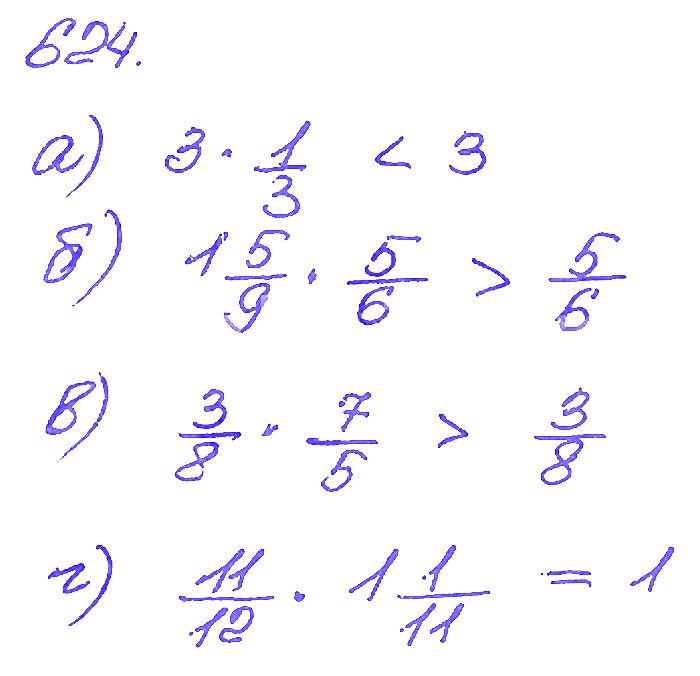 624.
а) 3 · 1/3 < 3
б) 1 5/9 · 5/6 > 5/6
в) 3/8 · 7/5 > 3/8
г) 11/12 · 1 1/11 = 1